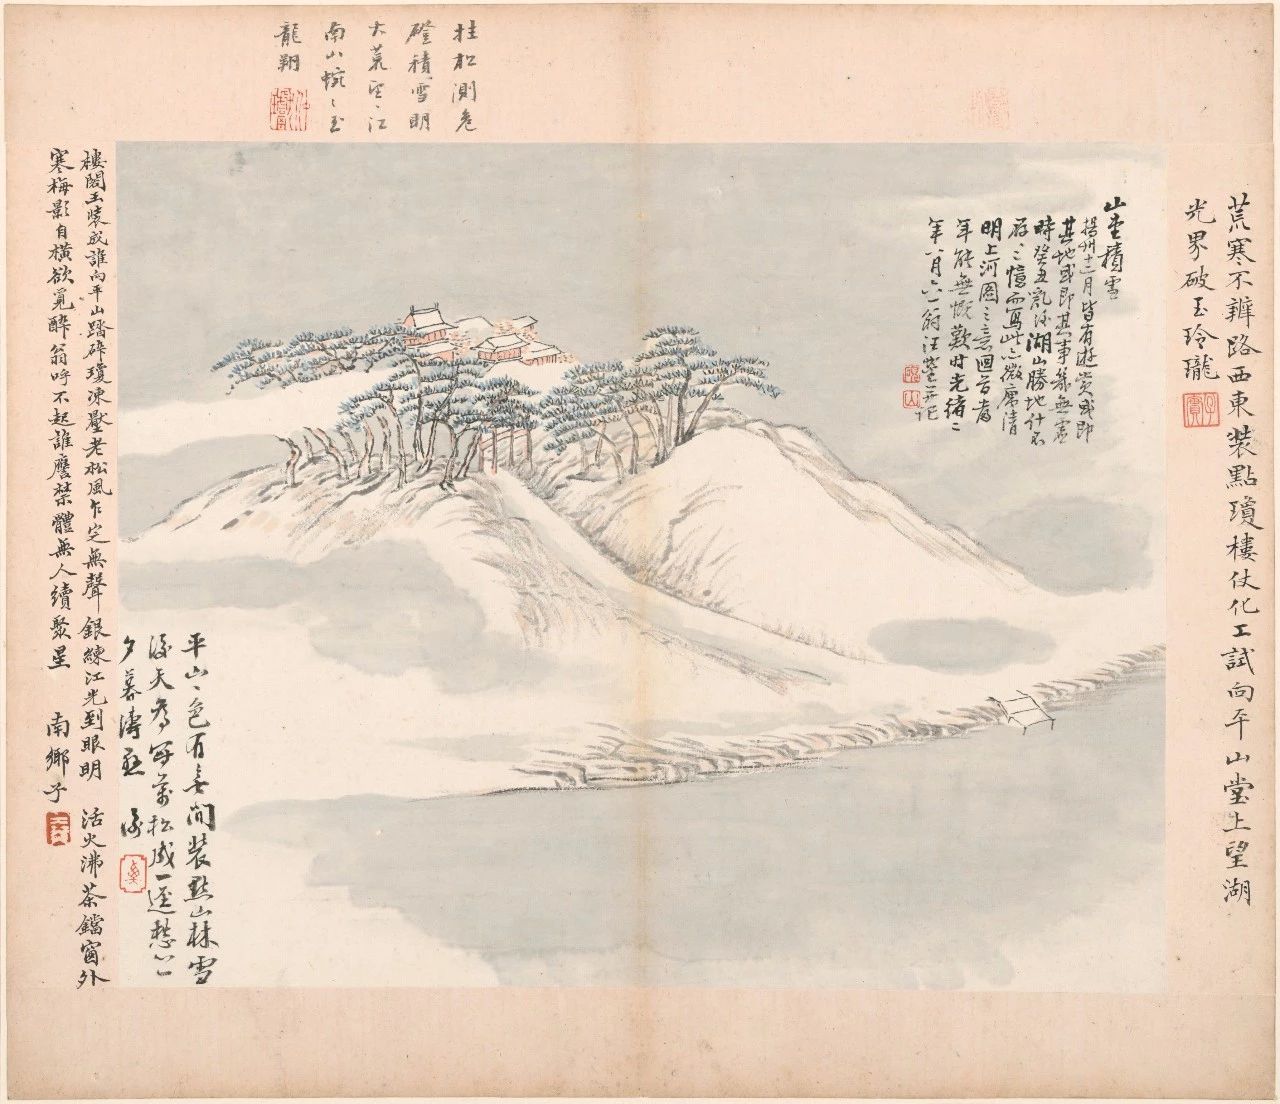 拄松測危
磴積雪明
大荒望、江
南山蜿、玉
龍翔
荒寒不辨路西東裝點瓊樓仗化工試向平山堂上望湖
光界破玉玲瓏
山堂積雪
揚州十二月皆有遊賞或即
其地或即其事幾無虛
時癸丑亂後湖山勝地什不
存二憶而寫此亦微席清
明上河圖之意回首當
年能無慨歎時光緒二
年八月六一翁汪鋆并記
樓閣玉裝成誰向平山踏碎瓊凍壓老松風乍定無聲銀練江光到眼明 活火沸茶鐺窗外
寒梅影自橫欲覓醉翁呼不起誰賡禁體無人續聚星 南鄉子
平山、色有無間裝點山林雪
後天為寫萬松成一逕愁
夕暮濤